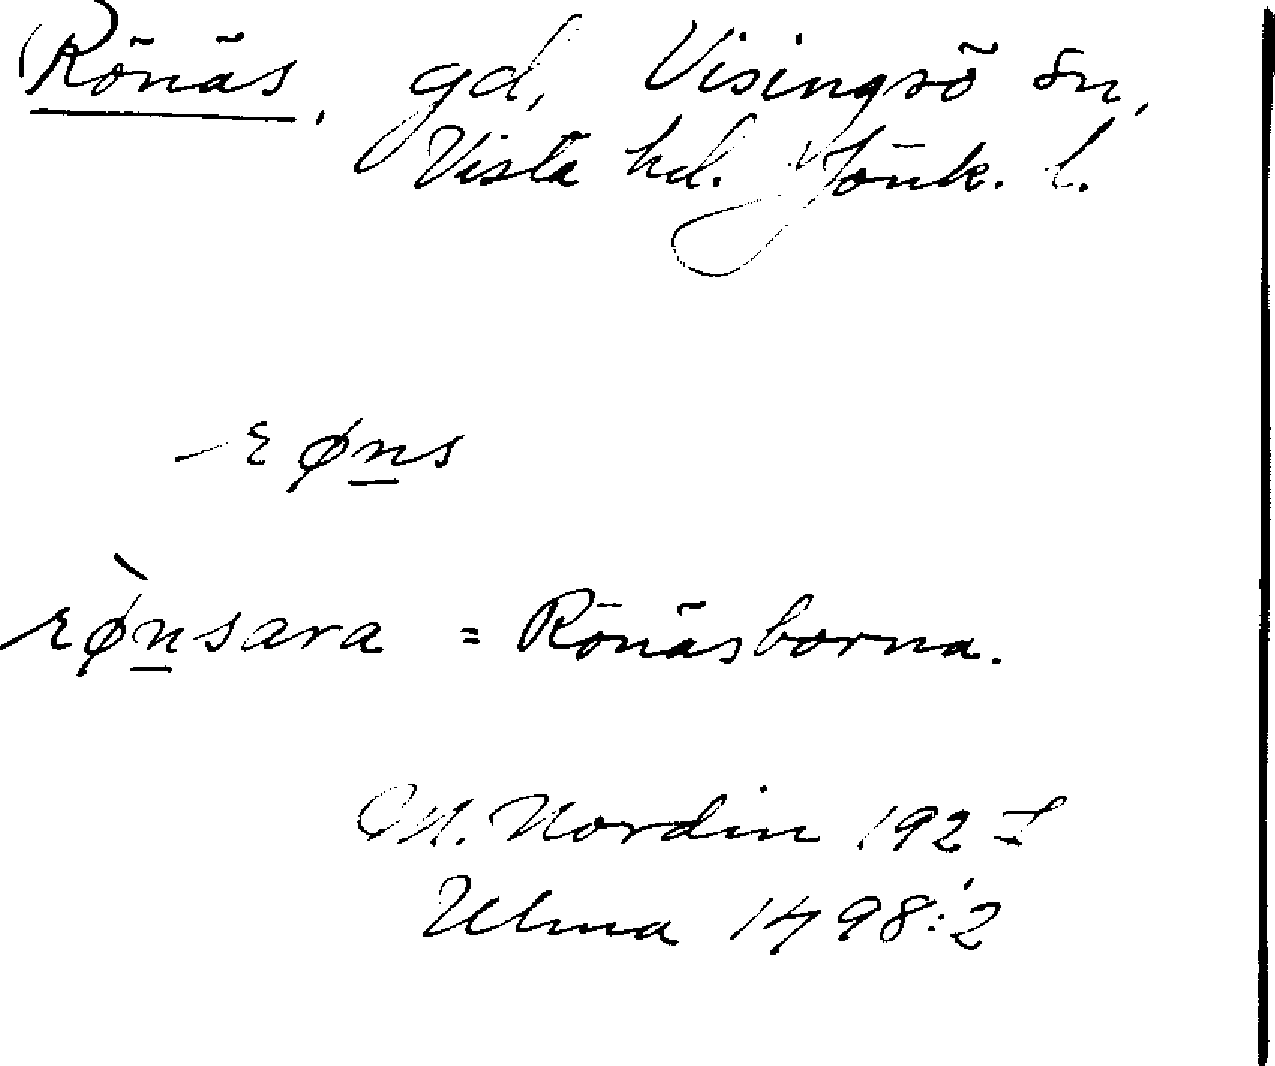 Rönäs, gd, Visingsö sn,
Vista hd. Jönk. l.
-røns
rø̀nsara = Rönäsborna.
M. Nordin 1927
Ulma 1498:2